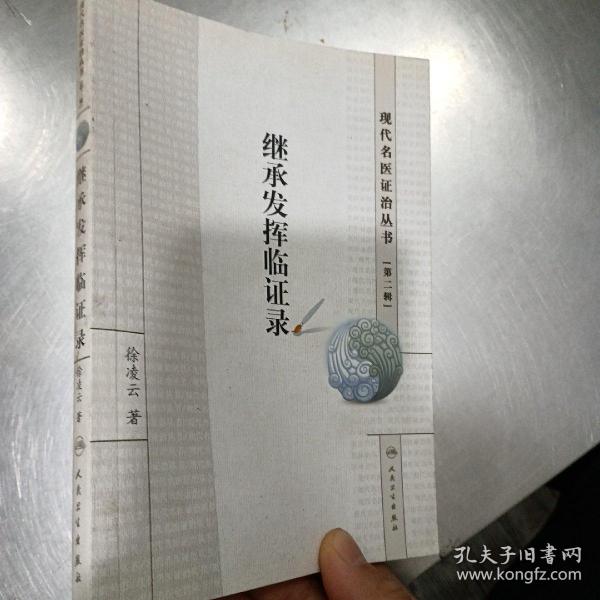 现代名医证治丛书
[第二辑]
继承发挥临证录
徐凌云 著
继承发挥临证录
徐凌云 著
人民卫生出版社
孔夫子旧書网
www.kongfz.com